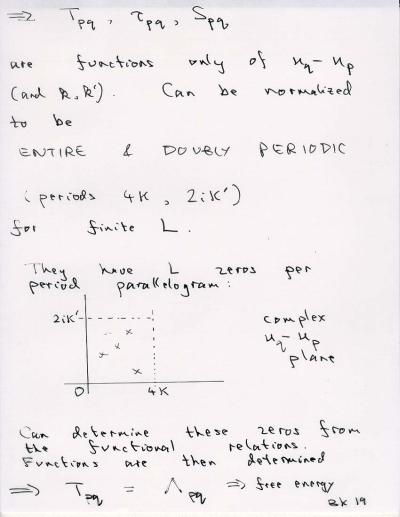 ⇒ T_pq, τ_pq, S_pq
are functions only of u_q - u_p
(and k, k'). Can be normalized
to be
ENTIRE & DOUBLY PERIODIC
(periods 4K, 2iK')
for finite L.
They have L zeros per
period parallelogram:
2iK'
0
4K
complex
u_q - u_p
plane
Can determine these zeros from
the functional relations.
Functions are then determined
⇒ T_pq = Λ_pq ⇒ free energy
19